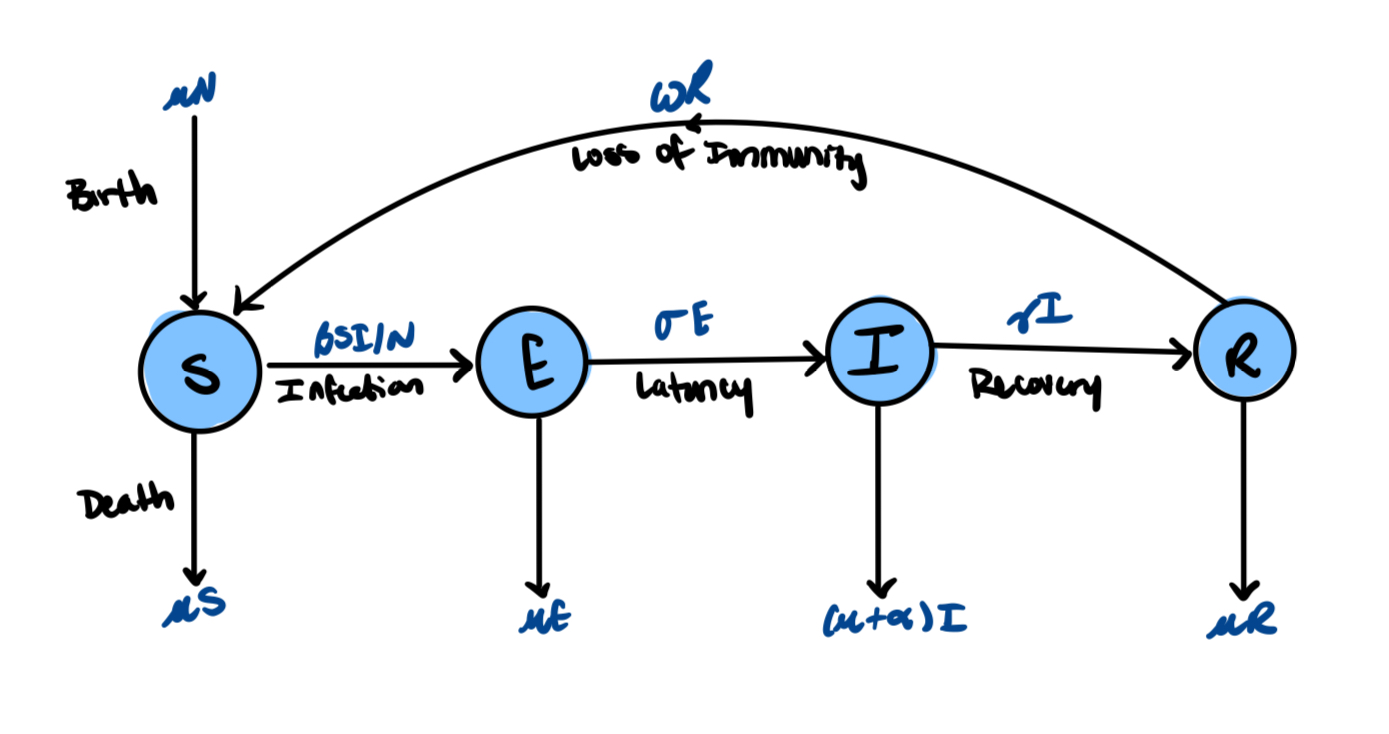 μN
ωR
Loss of Immunity
Birth
S
βSI/N
Infection
E
σE
Latency
I
γI
Recovery
R
Death
μS
μE
(μ+α)I
μR